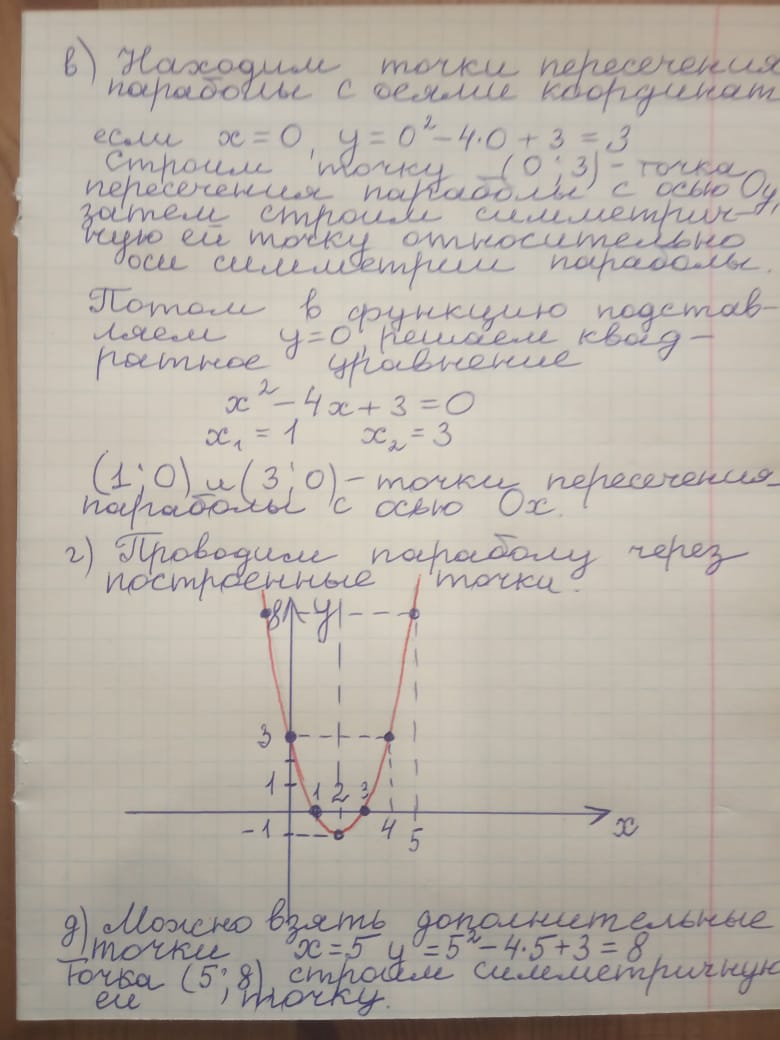 в) Находим точки пересечения
параболы с осями координат
если x = 0, y = 0² - 4·0 + 3 = 3
Строим точку (0; 3) - точка
пересечения параболы с осью Oy,
затем строим симметрич-
ную ей точку относительно
оси симметрии параболы.
Потом в функцию подстав-
ляем y=0, решаем квад-
ратное уравнение
x² - 4x + 3 = 0
x₁ = 1 x₂ = 3
(1; 0) и (3; 0) - точки пересечения
параболы с осью Ox.
г) Проводим параболу через
построенные точки.
8 y
3
1 1 2 3
-1 4 5 x
д) Можно взять дополнительные
точки x = 5 y = 5² - 4·5 + 3 = 8
Точка (5; 8), строим симметричную
ей точку.